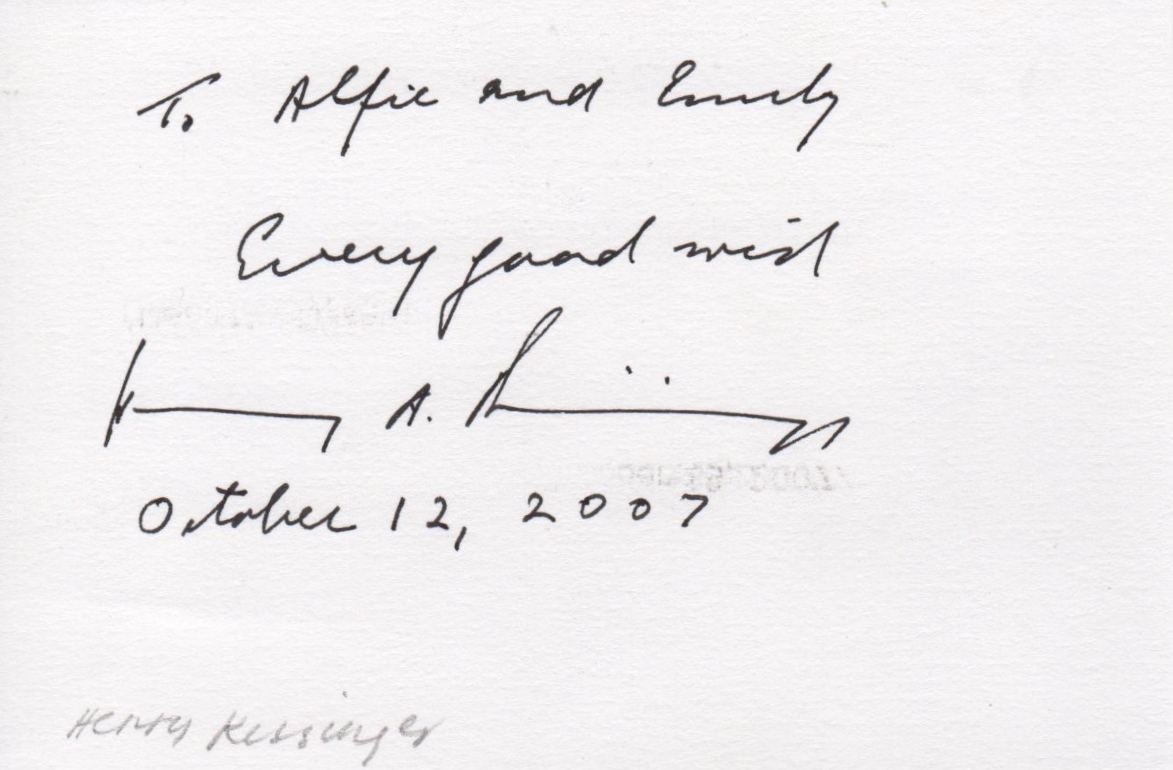 To Alfie and Emily
Every good wish
Henry A. Kissinger
October 12, 2007
Henry Kissinger